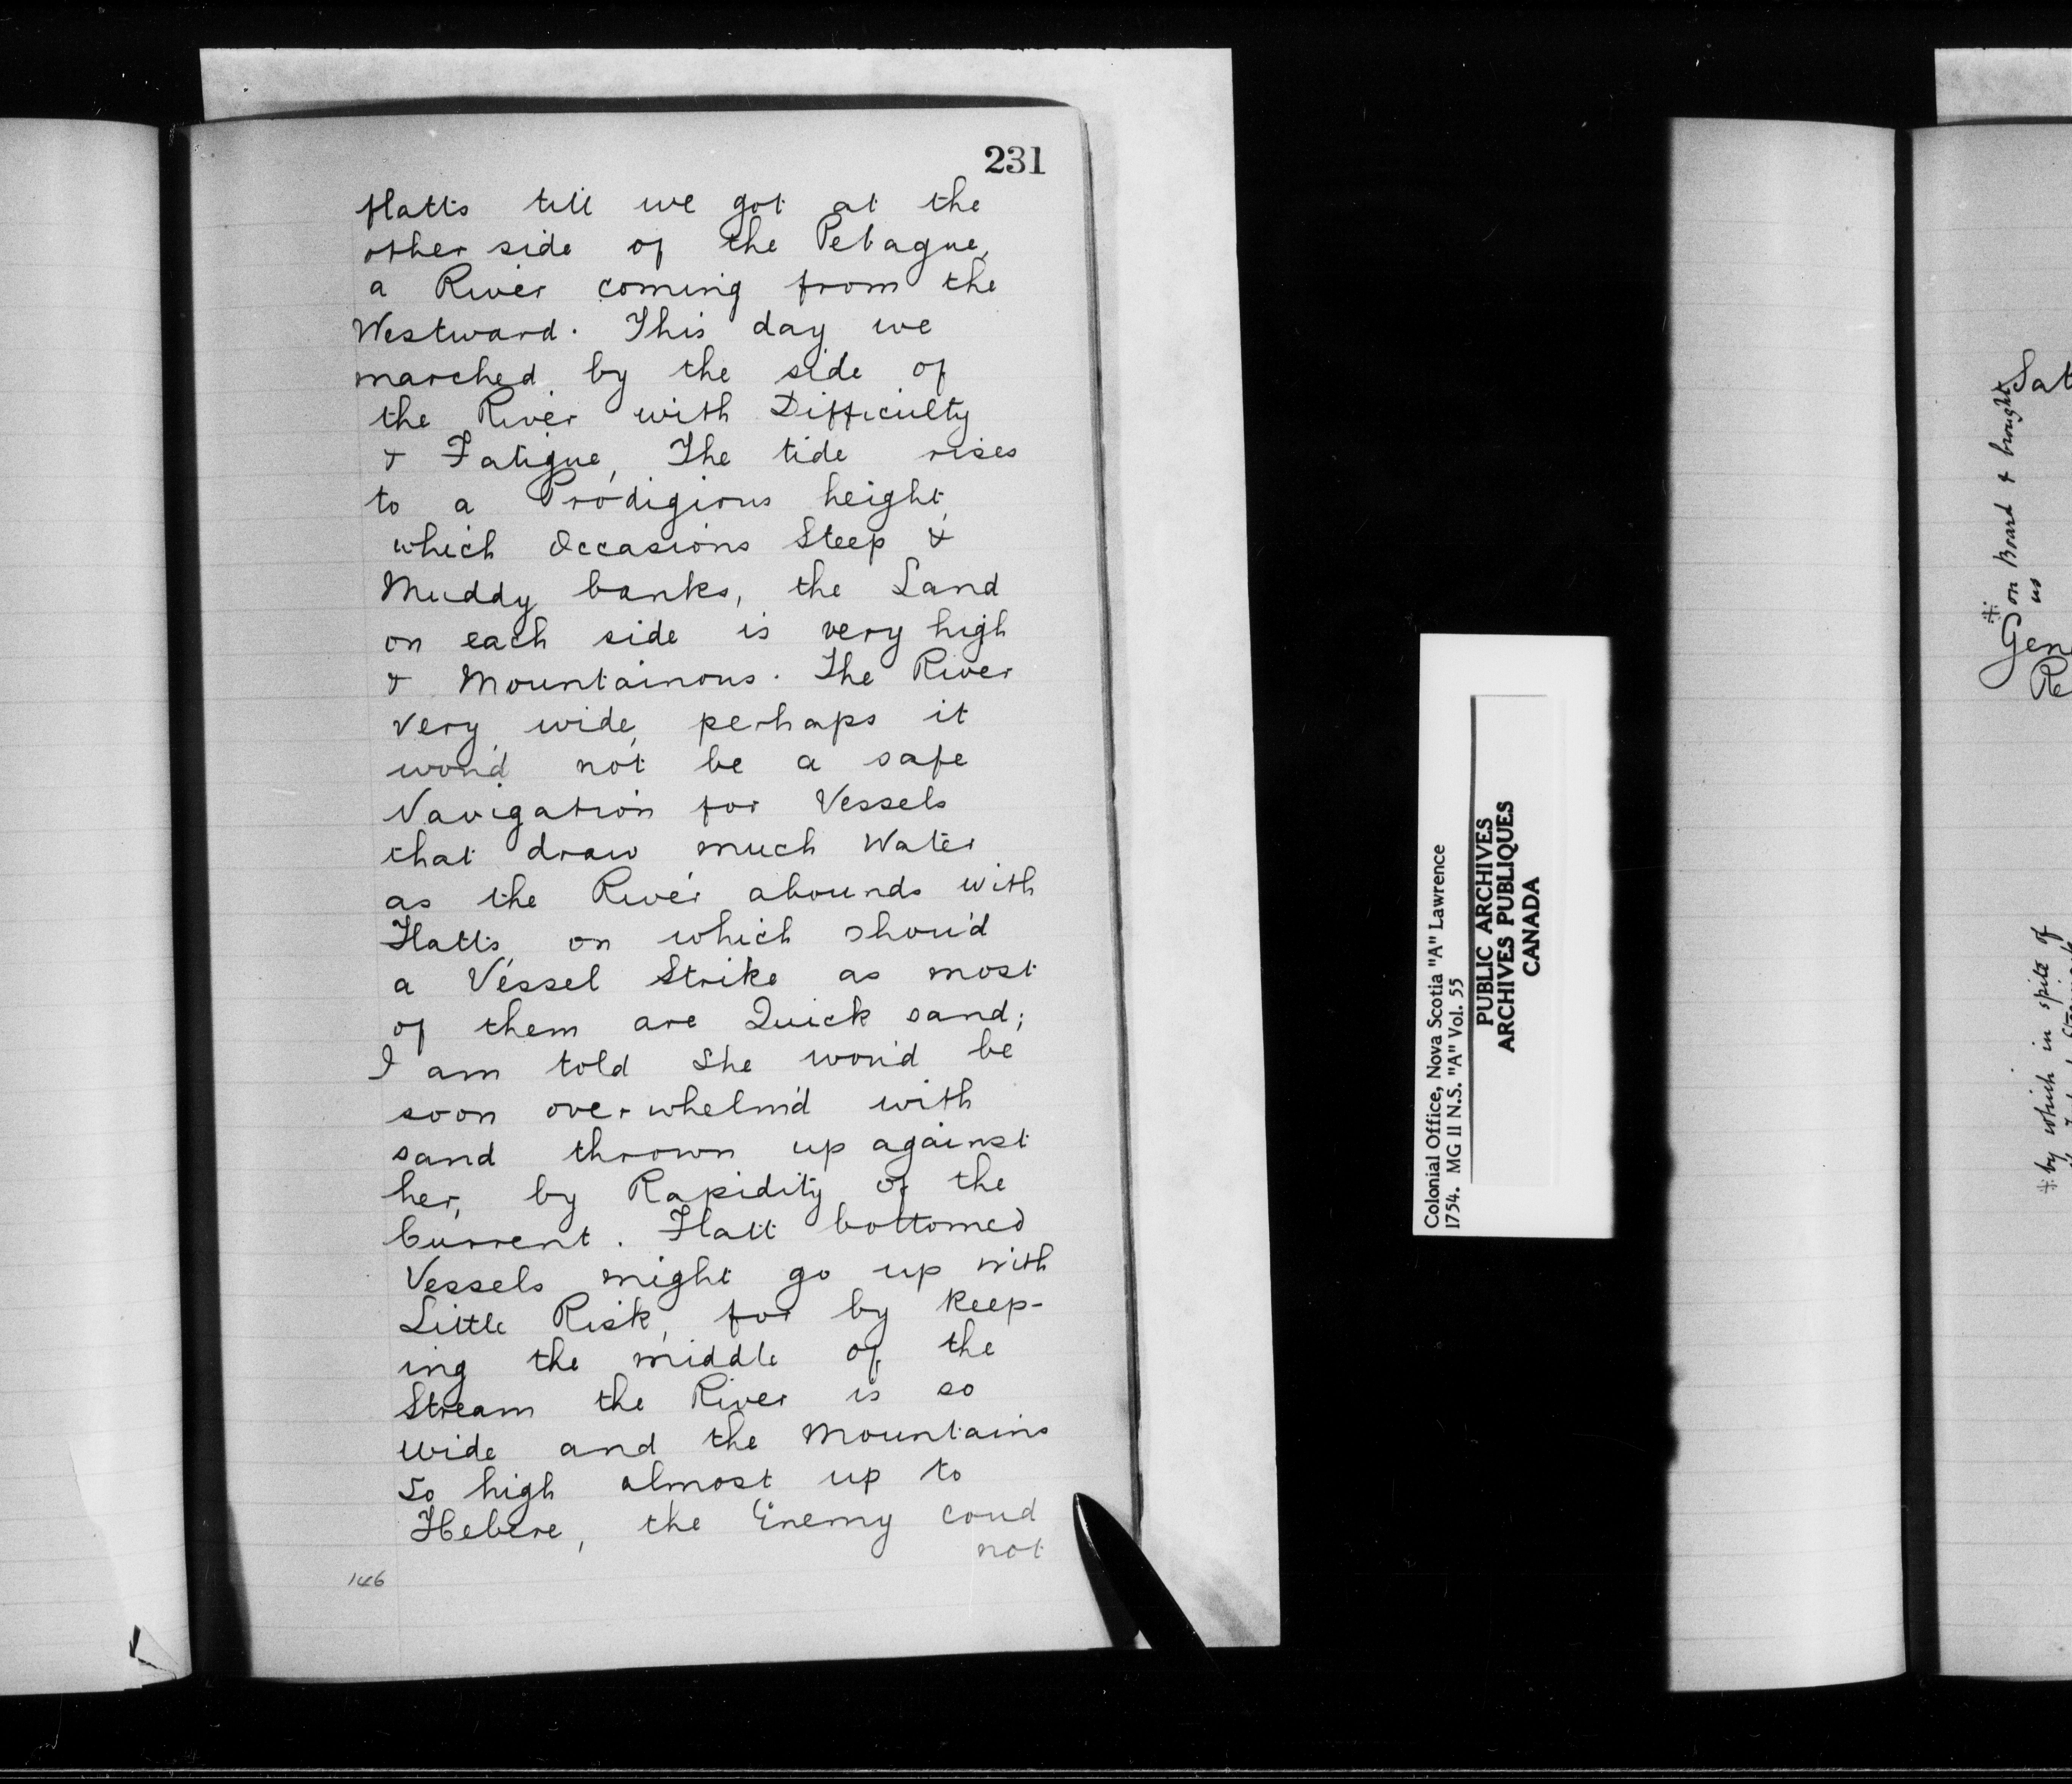 231
flatts till we got at the
other side of the Petague,
a River coming from the
Westward. This day we
marched by the side of
the River with Difficulty
& Fatigue, The tide rises
to a Prodigious height,
which Occasions Steep &
Muddy banks, the Land
on each side is very high
& Mountainous. The River
very wide, perhaps it
wou'd not be a safe
Navigation for Vessels
that draw much Water
as the River abounds with
Flatts, on which shou'd
a Vessel Strike as most
of them are Quick sand;
I am told She wou'd be
soon overwhelm'd with
sand thrown up against
her, by Rapidity of the
Current. Flatt bottomed
Vessels might go up with
Little Risk, for by keep-
ing the middle of the
Stream the River is so
wide and the Mountains
So high almost up to
Hebere, the Enemy coud
not
146
Colonial Office, Nova Scotia "A" Lawrence
1754. MG 11 N.S. "A" Vol. 55
PUBLIC ARCHIVES
ARCHIVES PUBLIQUES
CANADA
Sat
* on Board & brought
us
Gen
Re
* by which in spite of